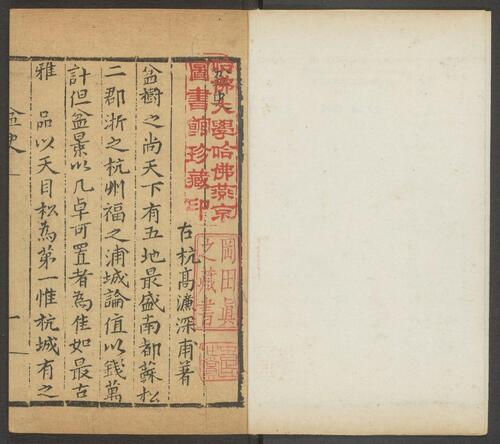 盆史
哈佛大學哈佛燕京
圖書館珍藏印
古杭高濂深甫著
岡田眞
之藏書
盆樹之尚天下有五地最盛南都蘇松
二郡浙之杭州福之浦城論值以錢萬
計但盆景以几卓可置者為佳如最古
雅 品以天目松為第一惟杭城有之
盆史
一